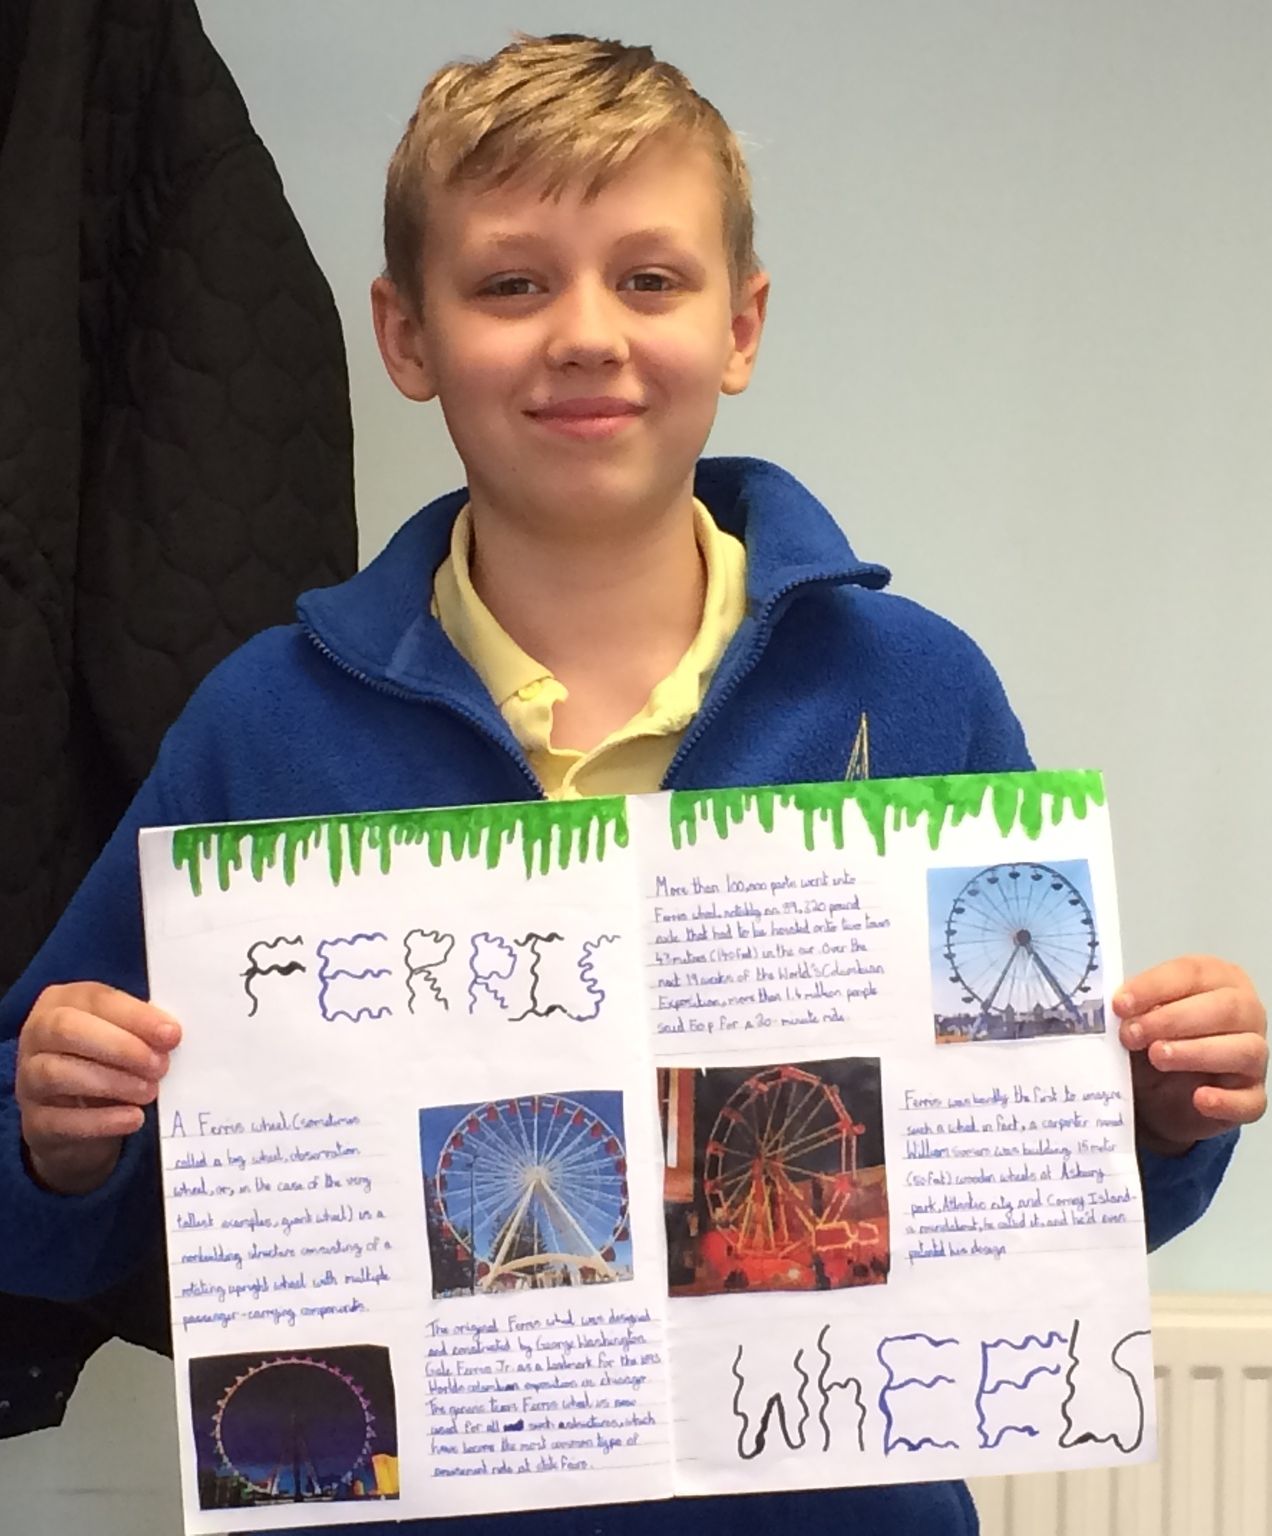 FERRIS
A Ferris wheel (sometimes
called a big wheel, observation
wheel, or, in the case of the very
tallest examples, giant wheel) is a
nonbuilding structure consisting of a
rotating upright wheel with multiple
passenger-carrying components.
The original Ferris wheel was designed
and constructed by George Washington
Gale Ferris Jr. as a landmark for the 1893
Worlds columbian exposition in chicago.
The generic term Ferris wheel is now
used for all such structures, which
have become the most common type of
amusement ride at state fairs.
More than 100,000 parts went into
Ferris wheel, notably an 89,320 pound
axle that had to be hoisted onto two towers
43 metres (140 feet) in the air. Over the
next 19 weeks of the World's Columbian
Exposition, more than 1.4 million people
said 50p for a 20-minute ride.
Ferris was hardly the first to imagine
such a wheel. in fact, a carpenter named
William somers was building 15 meter
(50 feet) wooden wheels at Asbury
park, Atlantic city and Coney Island-
a roundabout, he called it, and he'd even
patented his design
WhEELS